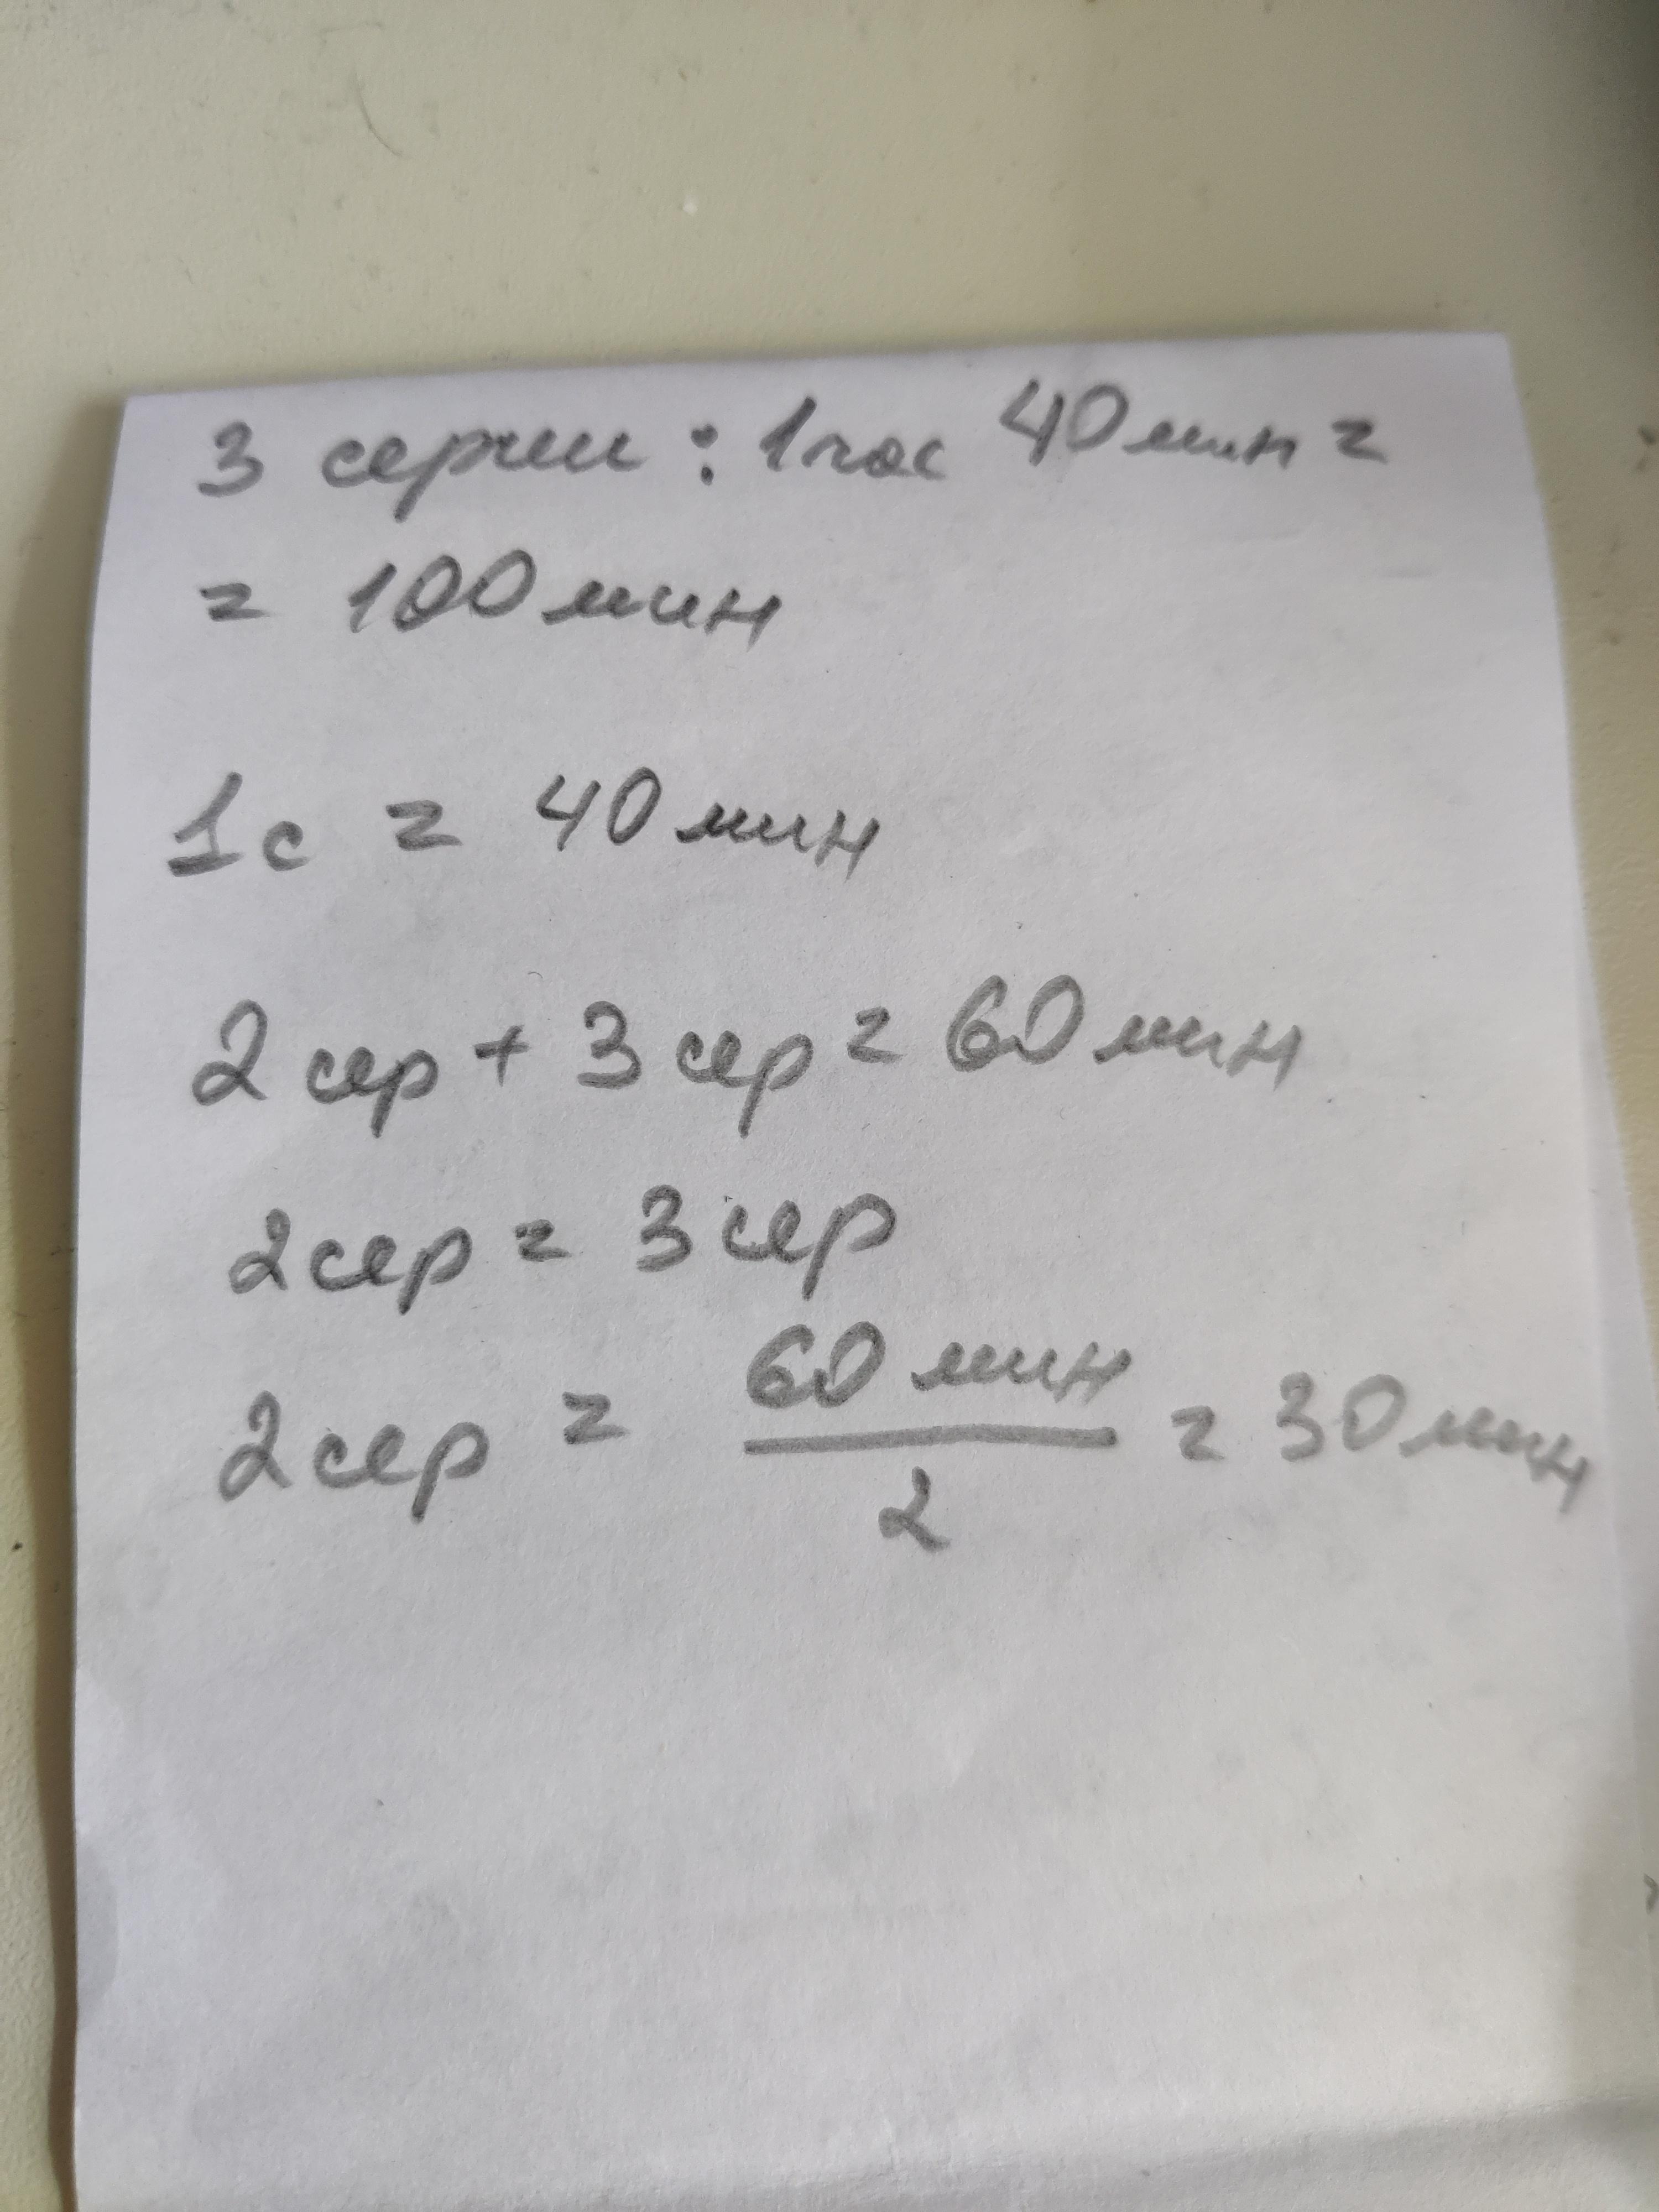 3 серии : 1 час 40 мин =
= 100 мин
1с = 40 мин
2 сер + 3 сер = 60 мин
2 сер = 3 сер
2 сер = 60 мин / 2 = 30 мин